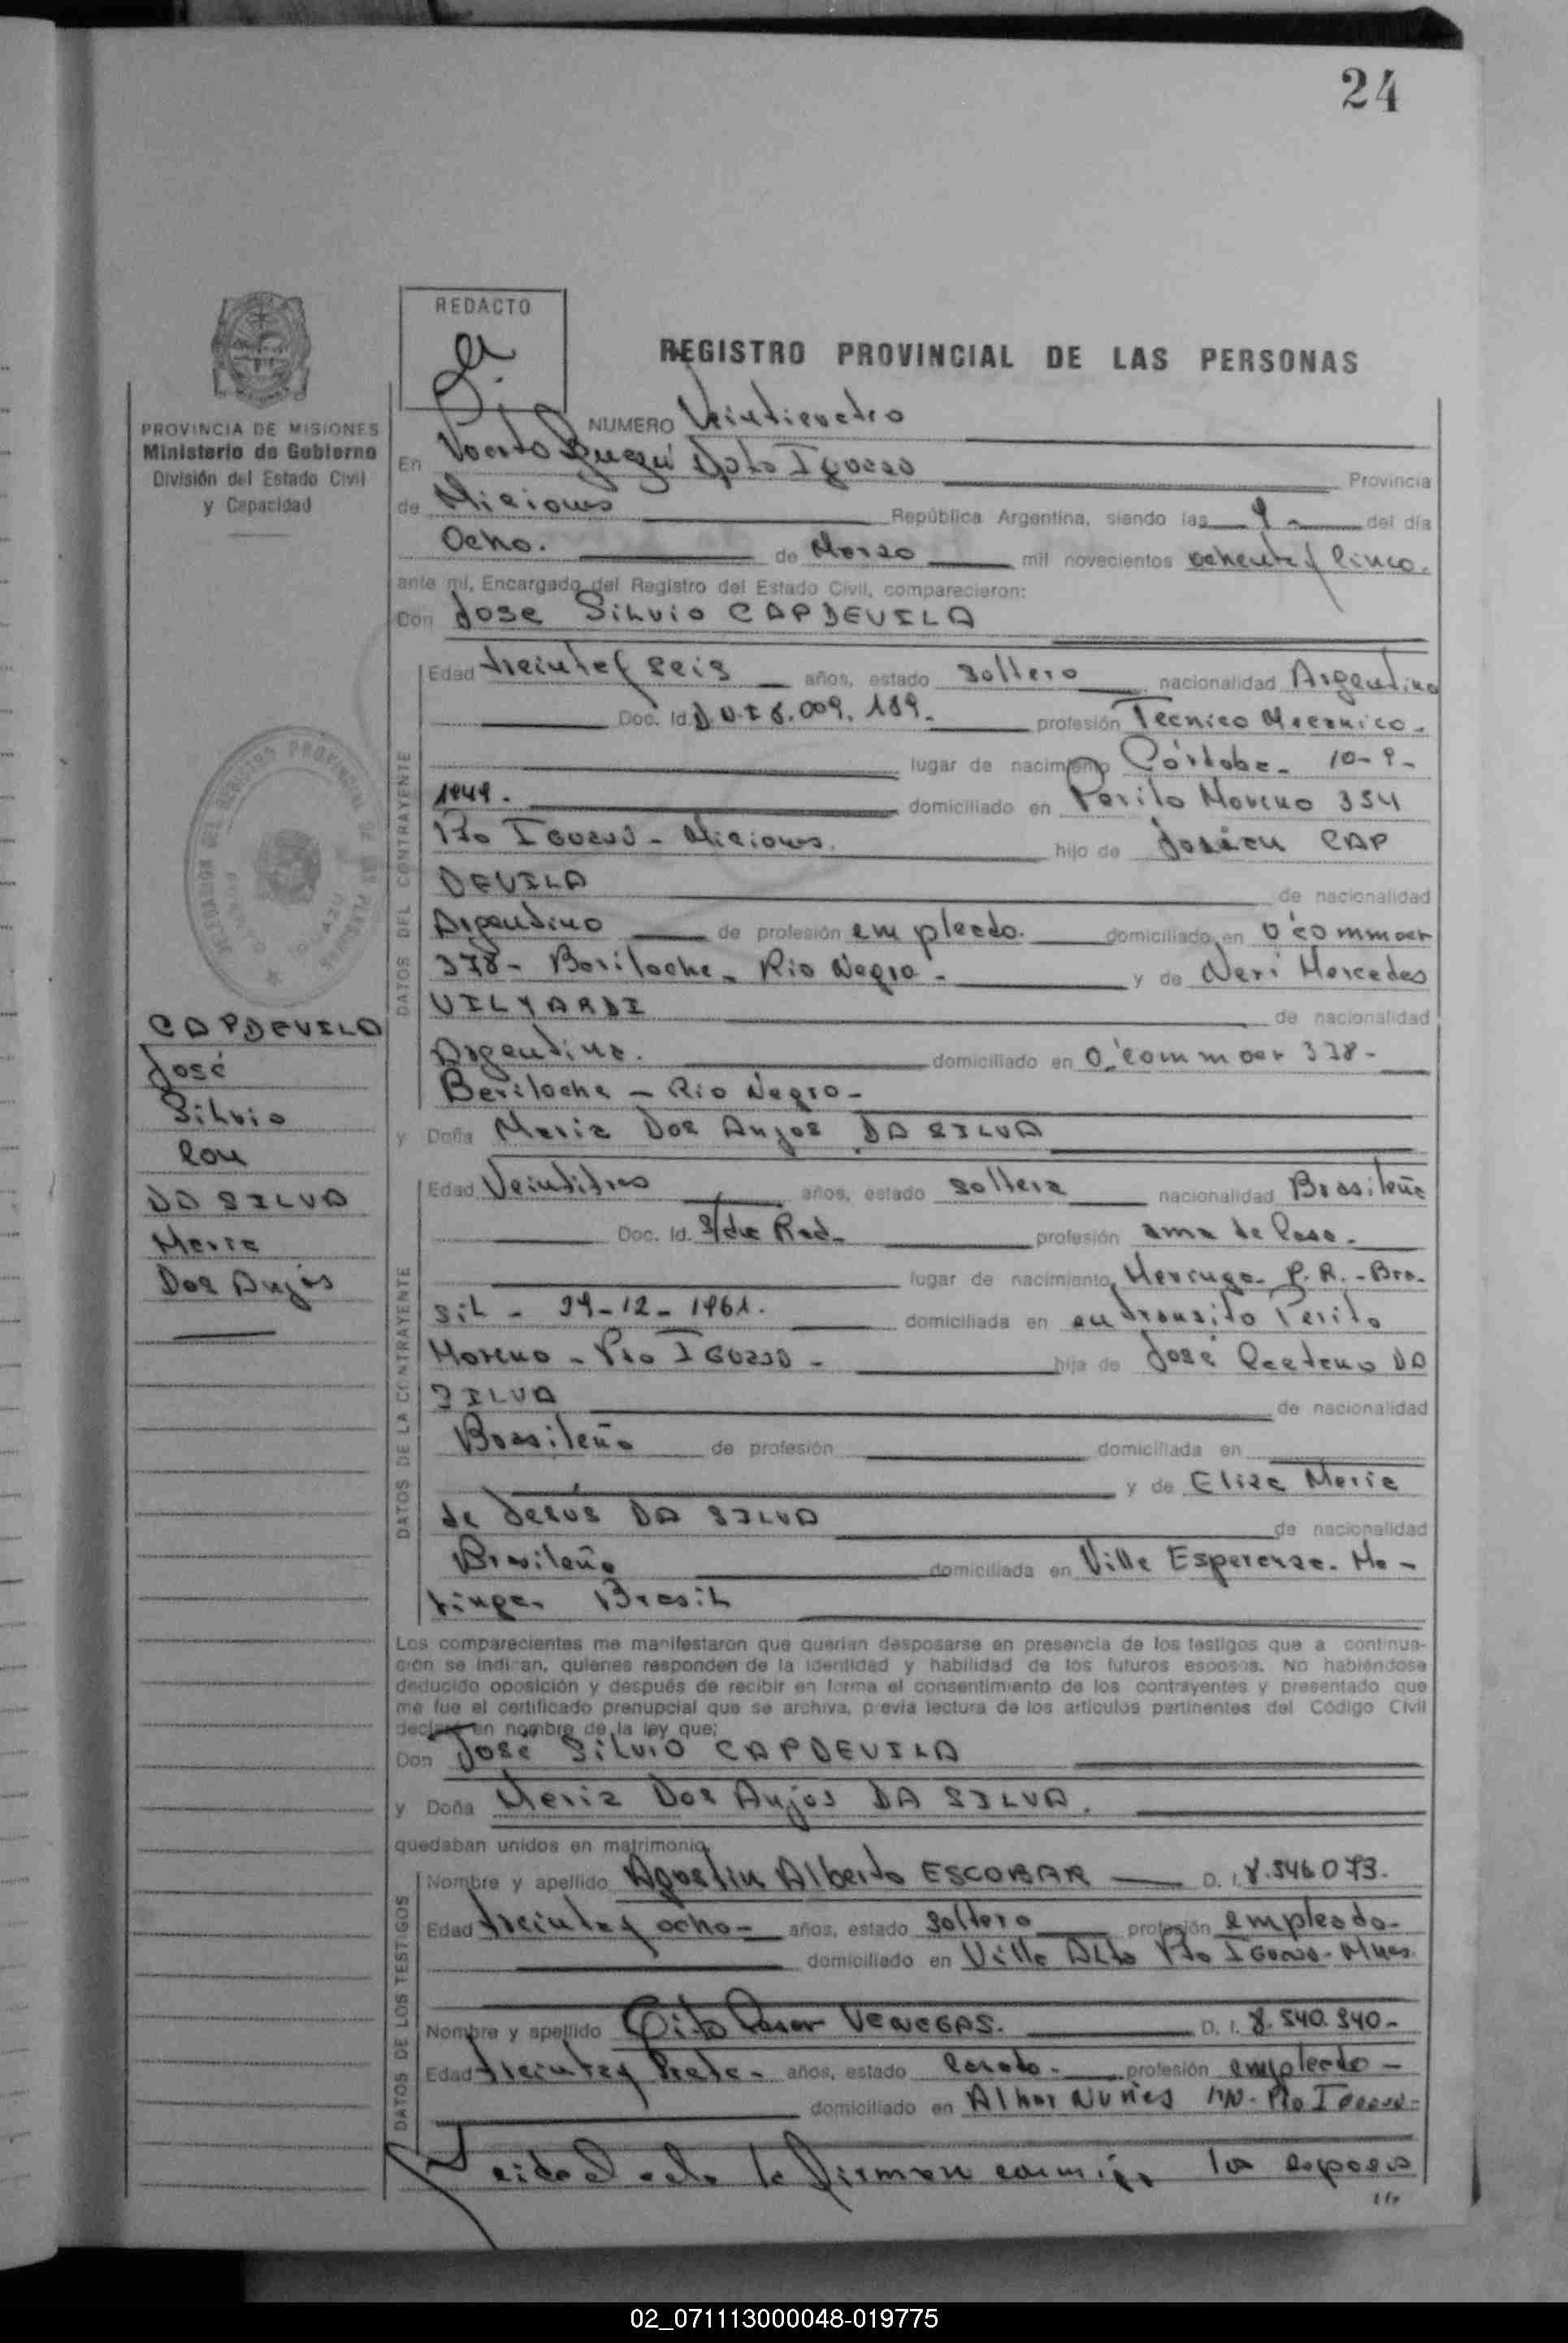 24
REDACTO
REGISTRO PROVINCIAL DE LAS PERSONAS
PROVINCIA DE MISIONES
Ministerio de Gobierno
División del Estado Civil
y Capacidad
NUMERO Veinticuatro
En Puerto Iguazú Dpto Iguazú Provincia
de Misiones República Argentina, siendo las 9 - del día
Ocho. de Marzo mil novecientos ochenta y cinco.
ante mí, Encargado del Registro del Estado Civil, comparecieron:
Con Jose Silvio CAPDEVILA
DATOS DEL CONTRAYENTE
Edad treinta y seis años, estado soltero nacionalidad Argentino
Doc. Id. profesión Tecnico Mecanico.
lugar de nacimiento Córdoba - 10-9-
domiciliado en Perito Moreno 354
Pto Iguazú - Misiones. hijo de CAP
DEVILA de nacionalidad
Argentino de profesión empleado. domiciliado en
378 - Bariloche - Rio Negro - y de Neri Mercedes
VILYARDI de nacionalidad
Argentina. domiciliado en 378 -
Bariloche - Rio Negro -
y Doña Maria Dos Anjos DA SILVA
CAPDEVILA
José
Silvio
Con
DA SILVA
Maria
Dos Anjos
DATOS DE LA CONTRAYENTE
Edad Veintitres años, estado soltera nacionalidad Brasileña
Doc. Id. profesión ama de Casa.
lugar de nacimiento P. R. - Bra.
sil - 12 - 1961. domiciliada en en transito Perito
Moreno - Pto Iguazú - hija de José DA
SILVA de nacionalidad
Brasileño de profesión domiciliada en
y de Elisa Maria
de Jesús DA SILVA de nacionalidad
Brasileña domiciliada en Villa Esperanza. Ma -
ringa. Brasil
Los comparecientes me manifestaron que querían desposarse en presencia de los testigos que a continua-
ción se indican, quienes responden de la identidad y habilidad de los futuros esposos. No habiéndose
deducido oposición y después de recibir en forma el consentimiento de los contrayentes y presentado que
me fue el certificado prenupcial que se archiva, previa lectura de los artículos pertinentes del Código Civil
declaré en nombre de la ley que:
Don José Silvio CAPDEVILA
y Doña Maria Dos Anjos DA SILVA.
quedaban unidos en matrimonio
DATOS DE LOS TESTIGOS
Nombre y apellido Agustin Alberto ESCOBAR D. I. 8.546.073.
Edad treinta y ocho - años, estado soltero profesión empleado -
domiciliado en Villa Alta Pto Iguazú - Mnes.
Nombre y apellido Cesar VENEGAS. D. I. 8.540.340 -
Edad treinta y siete - años, estado casado - profesión empleado -
domiciliado en Alvar Nuñes S/N - Pto Iguazú -
Leida el acta la firman conmigo los esposos
///
02_071113000048-019775